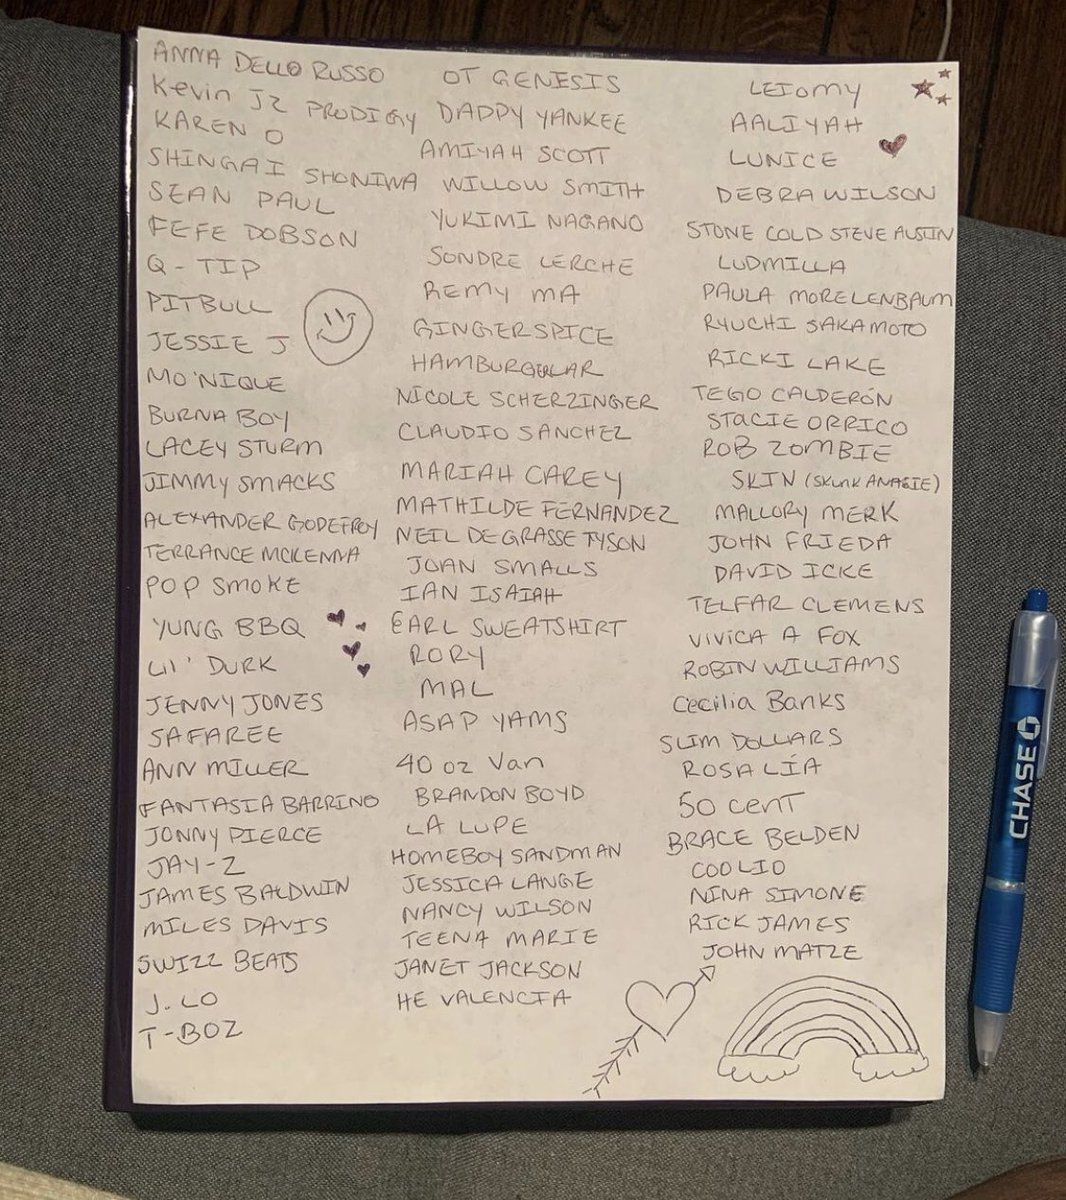 ANNA DELLO RUSSO
Kevin JZ PRODIGY
KAREN O
SHINGAI SHONIWA
SEAN PAUL
FEFE DOBSON
Q-TIP
PITBULL
JESSIE J
MO'NIQUE
BURNA BOY
LACEY STURM
JIMMY SMACKS
ALEXANDER GODEFROY
TERRANCE MCKENNA
POP SMOKE
YUNG BBQ
LIL' DURK
JENNY JONES
SAFAREE
ANN MILLER
FANTASIA BARRINO
JONNY PIERCE
JAY-Z
JAMES BALDWIN
MILES DAVIS
SWIZZ BEATS
J. LO
T-BOZ
OT GENESIS
DADDY YANKEE
AMIYAH SCOTT
WILLOW SMITH
YUKIMI NAGANO
SONDRE LERCHE
REMY MA
GINGERSPICE
HAMBURGERLAR
NICOLE SCHERZINGER
CLAUDIO SANCHEZ
MARIAH CAREY
MATHILDE FERNANDEZ
NEIL DEGRASSE TYSON
JOAN SMALLS
IAN ISAIAH
EARL SWEATSHIRT
RORY
MAL
ASAP YAMS
40 oz Van
BRANDON BOYD
LA LUPE
HOMEBOY SANDMAN
JESSICA LANGE
NANCY WILSON
TEENA MARIE
JANET JACKSON
HE VALENCIA
LEIOMY
AALIYAH
LUNICE
DEBRA WILSON
STONE COLD STEVE AUSTIN
LUDMILLA
PAULA MORELENBAUM
RYUCHI SAKAMOTO
RICKI LAKE
TEGO CALDERÓN
STACIE ORRICO
ROB ZOMBIE
SKIN (SKUNK ANASIE)
MALLORY MERK
JOHN FRIEDA
DAVID ICKE
TELFAR CLEMENS
VIVICA A FOX
ROBIN WILLIAMS
Cecilia Banks
SLIM DOLLARS
ROSALÍA
50 CENT
BRACE BELDEN
COOLIO
NINA SIMONE
RICK JAMES
JOHN MATZE
CHASE